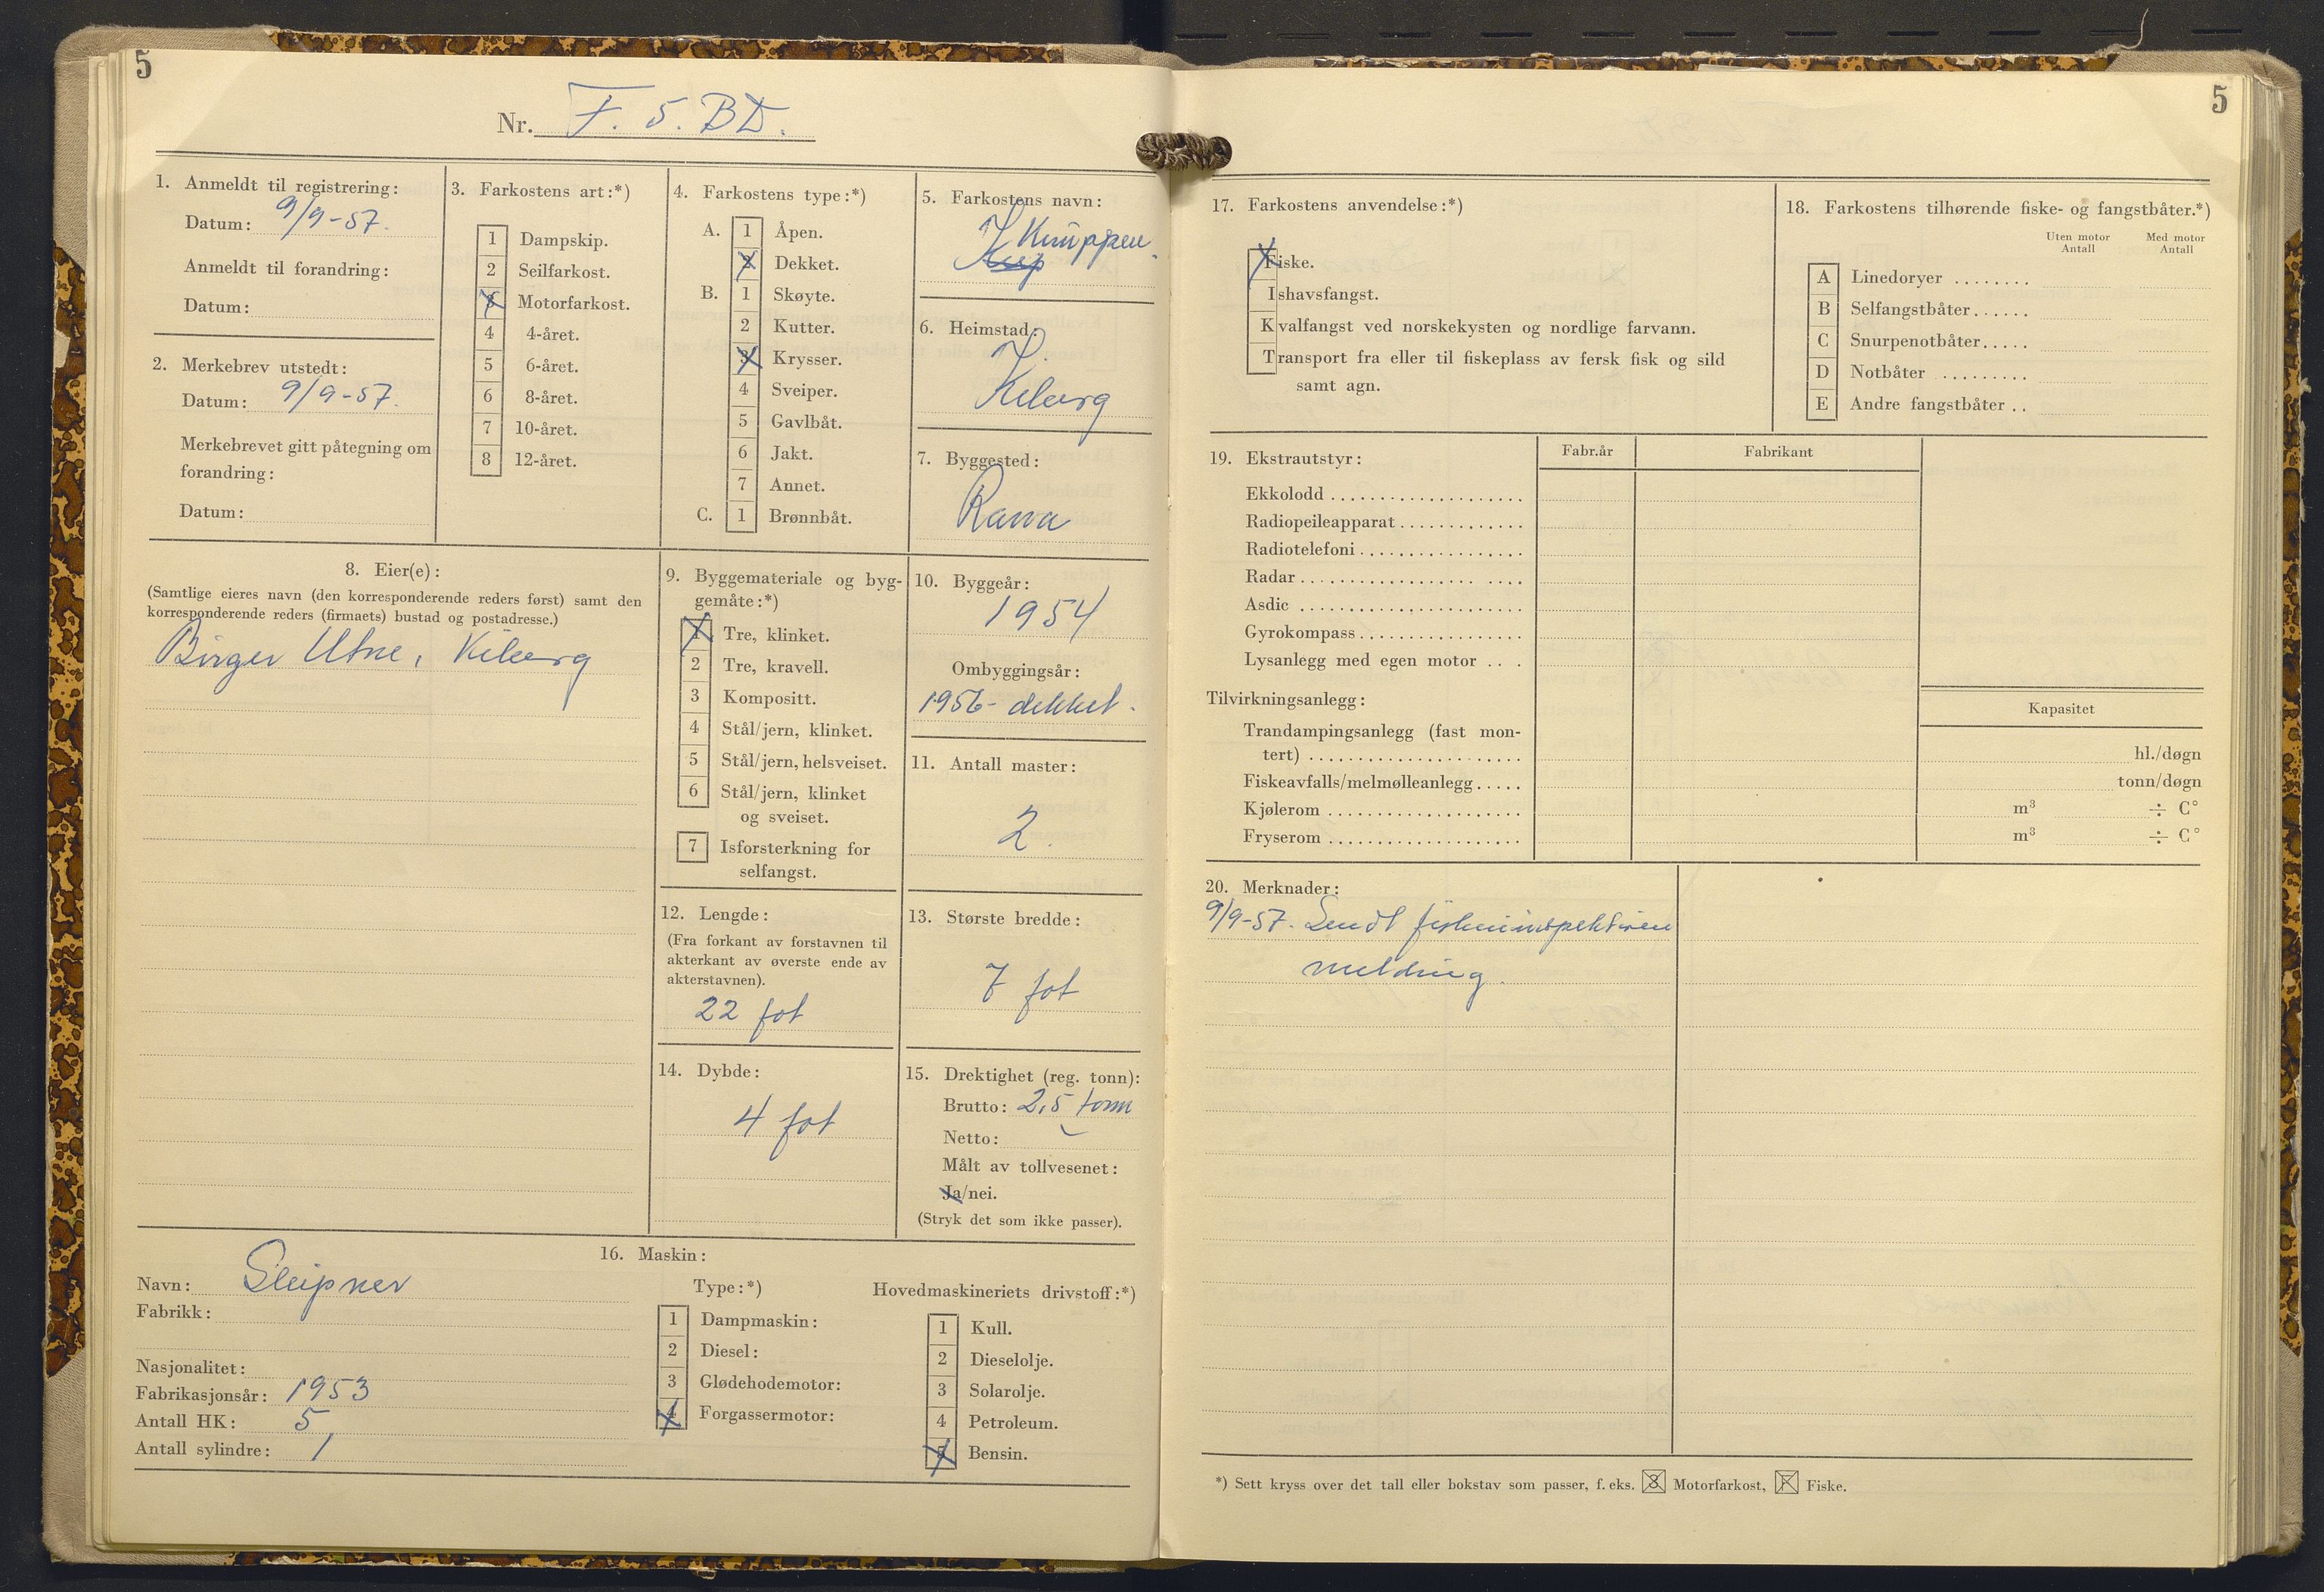 5
Nr. F. 5. BD.
1. Anmeldt til registrering:
Datum: 9/9-57.
Anmeldt til forandring:
Datum:
2. Merkebrev utstedt:
Datum: 9/9-57.
Merkebrevet gitt påtegning om
forandring:
Datum:
3. Farkostens art:*)
1 Dampskip.
2 Seilfarkost.
3 Motorfarkost.
4 4-året.
5 6-året.
6 8-året.
7 10-året.
8 12-året.
4. Farkostens type:*)
A. 1 Åpen.
2 Dekket.
B. 1 Skøyte.
2 Kutter.
3 Krysser.
4 Sveiper.
5 Gavlbåt.
6 Jakt.
7 Annet.
C. 1 Brønnbåt.
5. Farkostens navn:
Knuppen.
6. Heimstad:
Kiberg
7. Byggested:
Rana
8. Eier(e):
(Samtlige eieres navn (den korresponderende reders først) samt den
korresponderende reders (firmaets) bustad og postadresse.)
Birger Utne, Kiberg
9. Byggemateriale og byg-
gemåte:*)
1 Tre, klinket.
2 Tre, kravell.
3 Kompositt.
4 Stål/jern, klinket.
5 Stål/jern, helsveiset.
6 Stål/jern, klinket
og sveiset.
7 Isforsterkning for
selfangst.
10. Byggeår:
1954
Ombyggingsår:
1956- dekket.
11. Antall master:
2
12. Lengde:
(Fra forkant av forstavnen til
akterkant av øverste ende av
akterstavnen).
22 fot
13. Største bredde:
7 fot
14. Dybde:
4 fot
15. Drektighet (reg. tonn):
Brutto: 2,5 tonn
Netto:
Målt av tollvesenet:
Ja/nei.
(Stryk det som ikke passer).
16. Maskin:
Navn: Sleipner
Fabrikk:
Nasjonalitet:
Fabrikasjonsår: 1953
Antall HK: 5
Antall sylindre: 1
Type:*)
1 Dampmaskin:
2 Diesel:
3 Glødehodemotor:
4 Forgassermotor:
Hovedmaskineriets drivstoff:*)
1 Kull.
2 Dieselolje.
3 Solarolje.
4 Petroleum.
5 Bensin.
5
17. Farkostens anvendelse:*)
Fiske.
Ishavsfangst.
Kvalfangst ved norskekysten og nordlige farvann.
Transport fra eller til fiskeplass av fersk fisk og sild
samt agn.
18. Farkostens tilhørende fiske- og fangstbåter.*)
Uten motor Med motor
Antall Antall
A Linedoryer ........
B Selfangstbåter......
C Snurpenotbåter.....
D Notbåter .........
E Andre fangstbåter ..
19. Ekstrautstyr:
Fabr.år Fabrikant
Ekkolodd ....................
Radiopeileapparat.............
Radiotelefoni.................
Radar.................. ....
Asdic .......................
Gyrokompass.................
Lysanlegg med egen motor .. .
Tilvirkningsanlegg:
Kapasitet
Trandampingsanlegg (fast mon-
tert) ...................... hl./døgn
Fiskeavfalls/melmølleanlegg..... tonn/døgn
Kjølerom .................... m³ ÷ C°
Fryserom .................... m³ ÷ C°
20. Merknader:
9/9-57. Sendt fiskeriinspektøren
melding.
*) Sett kryss over det tall eller bokstav som passer, f. eks. 3 Motorfarkost, F Fiske.